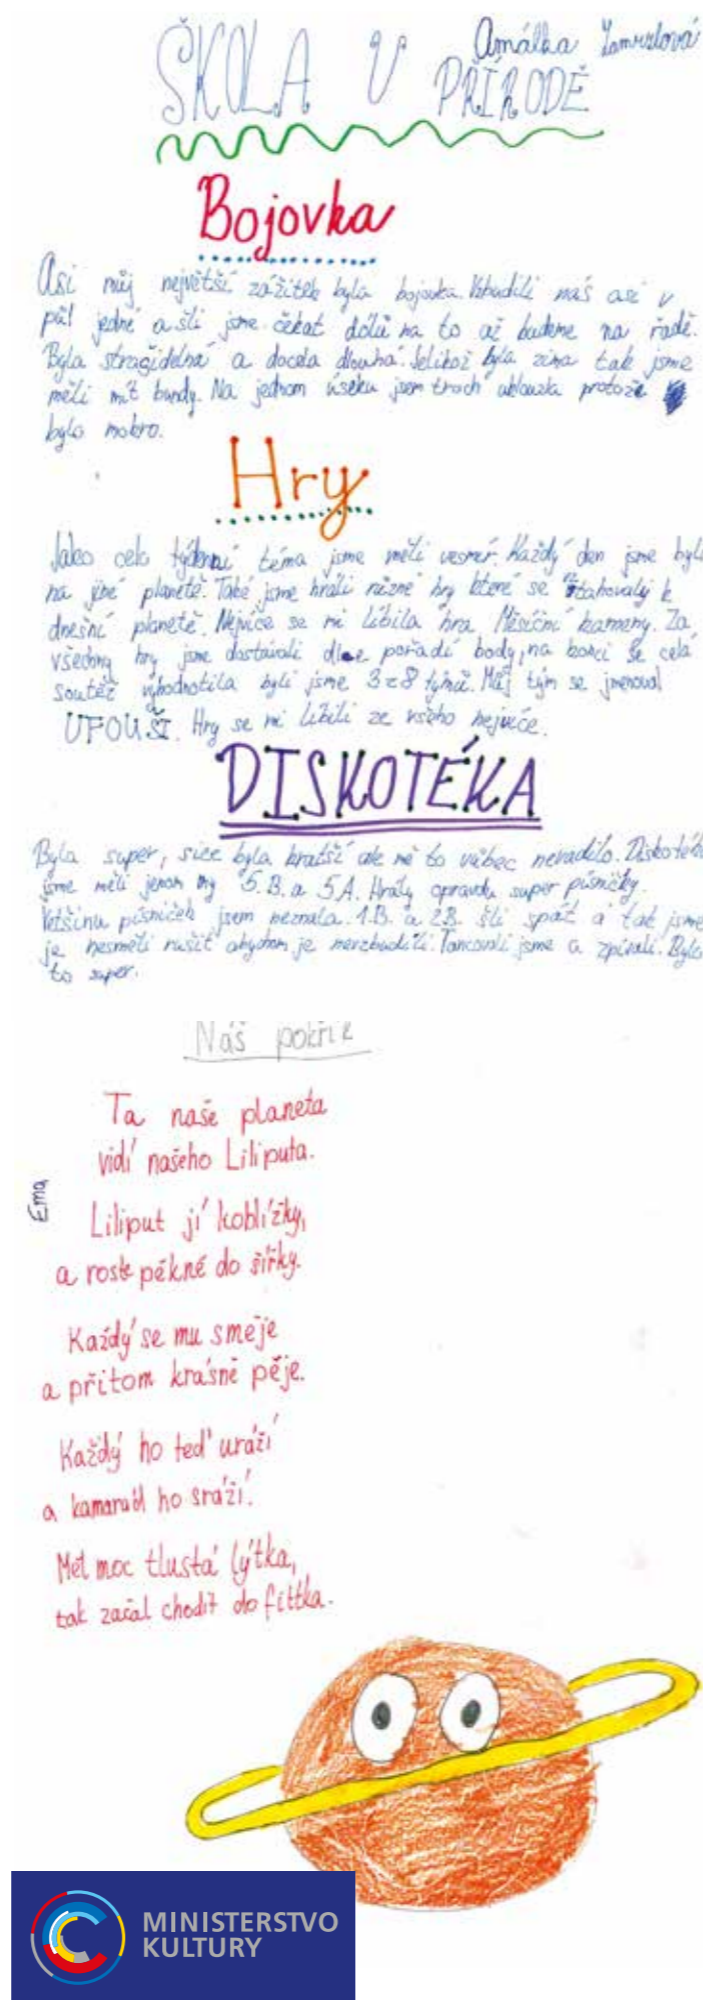 Amálka
ŠKOLA V PŘÍRODĚ
Bojovka
Asi můj největší zážitek byla bojovka. Vzbudili nás asi v
půl jedné a šli jsme čekat dolů na to až budeme na řadě.
Byla strašidelná a docela dlouhá. Jelikož byla zima tak jsme
měli mít bundy. Na jednom úseku jsem troch uklouzla protože
bylo mokro.
Hry
Jako celo týdenní téma jsme měli vesmír. Každý den jsme byli
na jiné planetě. Také jsme hráli různé hry které se vztahovaly k
dnešní planetě. Nejvíce se mi líbila hra Měsíční kameny. Za
všechny hry jsme dostávali dle pořadí body, na konci se celá
soutěž vyhodnotila byli jsme 3 z 8 týmů. Můj tým se jmenoval
UFOUŠI. Hry se mi líbili ze všeho nejvíce.
DISKOTÉKA
Byla super, sice byla kratší ale mě to vůbec nevadilo. Diskotéku
jsme měli jenom my 5.B. a 5A. Hráli opravdu super písničky.
Většinu písniček jsem neznala. 1.B. a 2B. šli spát a tak jsme
je nesměli rušit abychom je nevzbudili. Tancovali jsme a zpívali. Bylo
to super.
Náš pokřik
Ta naše planeta
vidí našeho Liliputa.
Ema
Liliput jí koblížky,
a roste pěkně do šířky.
Každý se mu směje
a přitom krásně pěje.
Každý ho teď uráží
a kamarád ho sráží.
Měl moc tlustá lýtka,
tak začal chodit do fittka.
MINISTERSTVO
KULTURY